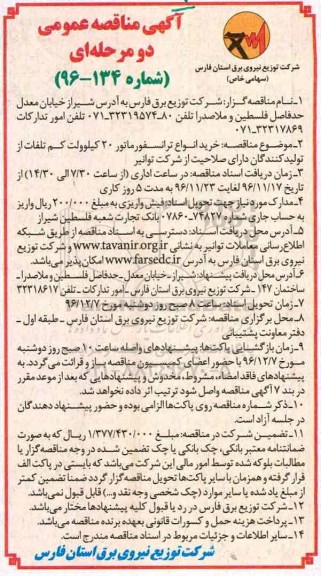 آگهی مناقصه عمومی
دو مرحله‌ای
(شماره ۱۳۴-۹۶)
شرکت توزیع نیروی برق استان فارس
(سهامی خاص)
۱-نام مناقصه گزار: شرکت توزیع برق فارس به آدرس شیراز خیابان معدل
حدفاصل فلسطین و ملاصدرا تلفن ۸۰-۳۲۳۱۹۵۷۴-۰۷۱ تلفن امور تدارکات
۰۷۱-۳۲۳۱۷۸۶۹
۲-موضوع مناقصه: خرید انواع ترانسفورماتور ۲۰ کیلوولت کم تلفات از
تولیدکنندگان دارای صلاحیت از شرکت توانیر
۳-زمان دریافت اسناد مناقصه: در ساعت اداری (از ساعت ۷/۳۰ الی ۱۴/۳۰) از
تاریخ ۹۶/۱۱/۱۷ لغایت ۹۶/۱۱/۲۳ به مدت ۵ روز کاری
۴-مدارک مورد نیاز جهت تحویل اسناد: فیش واریزی به مبلغ ۲۰۰/۰۰۰ ریال واریز
به حساب جاری شماره ۰۷۸۶۰۰۷۴۸۲۷ بانک تجارت شعبه فلسطین شیراز
۵-آدرس محل دریافت اسناد: دسترسی به اسناد مناقصه از طریق شبکه
اطلاع رسانی معاملات توانیر به نشانی www.tavanir.org.ir و شرکت توزیع
نیروی برق فارس به آدرس www.farsedc.ir امکان پذیر می‌باشد.
۶-آدرس محل دریافت پیشنهاد: شیراز-خیابان معدل-حدفاصل فلسطین و ملاصدرا-
ساختمان ۱۴۷-شرکت توزیع نیروی برق استان فارس-امور تدارکات-تلفن ۳۲۳۱۸۶۱۷
۷-زمان تحویل اسناد: ساعت ۸ صبح روز دوشنبه مورخ ۹۶/۱۲/۷
۸-محل برگزاری مناقصه: شرکت توزیع نیروی برق استان فارس - طبقه اول -
دفتر معاونت پشتیبانی
۹-زمان بازگشایی پاکت‌ها: پیشنهادهای واصله ساعت ۱۰ صبح روز دوشنبه
مورخ ۹۶/۱۲/۷ با حضور اعضای کمیسیون مناقصه باز و قرائت می‌گردد. به
پیشنهادهای فاقد امضاء، مشروط، مخدوش و پیشنهادهایی که بعد از موعد مقرر
در بند ۷ آگهی مناقصه واصل شود ترتیب اثر داده نخواهد شد.
۱۰-ذکر شماره مناقصه روی پاکت‌ها الزامی بوده و حضور پیشنهاد دهندگان
در جلسه آزاد است.
۱۱-تضمین شرکت در مناقصه: مبلغ ۱/۳۷۷/۴۳۰/۰۰۰ ریال که به صورت
ضمانتنامه معتبر بانکی، چک بانکی یا چک تضمین شده در وجه مناقصه گزار یا
مطالبات بلوکه شده توسط امور مالی این شرکت می‌باشد که بایستی در پاکت الف
قرار گرفته و همزمان با سایر پاکت‌ها تحویل مناقصه گزار گردد ضمنا تضمین کمتر
از مبلغ یاد شده یا سایر موارد (چک شخصی وجه نقد و...) قابل قبول نمی‌باشد.
۱۲-شرکت توزیع برق فارس در رد یا قبول کلیه پیشنهادها مختار می‌باشد.
۱۳-پرداخت هزینه حمل و کسورات قانونی بعهده برنده مناقصه می‌باشد.
۱۴-سایر اطلاعات و جزئیات مربوط در اسناد مناقصه مندرج است.
شرکت توزیع نیروی برق استان فارس